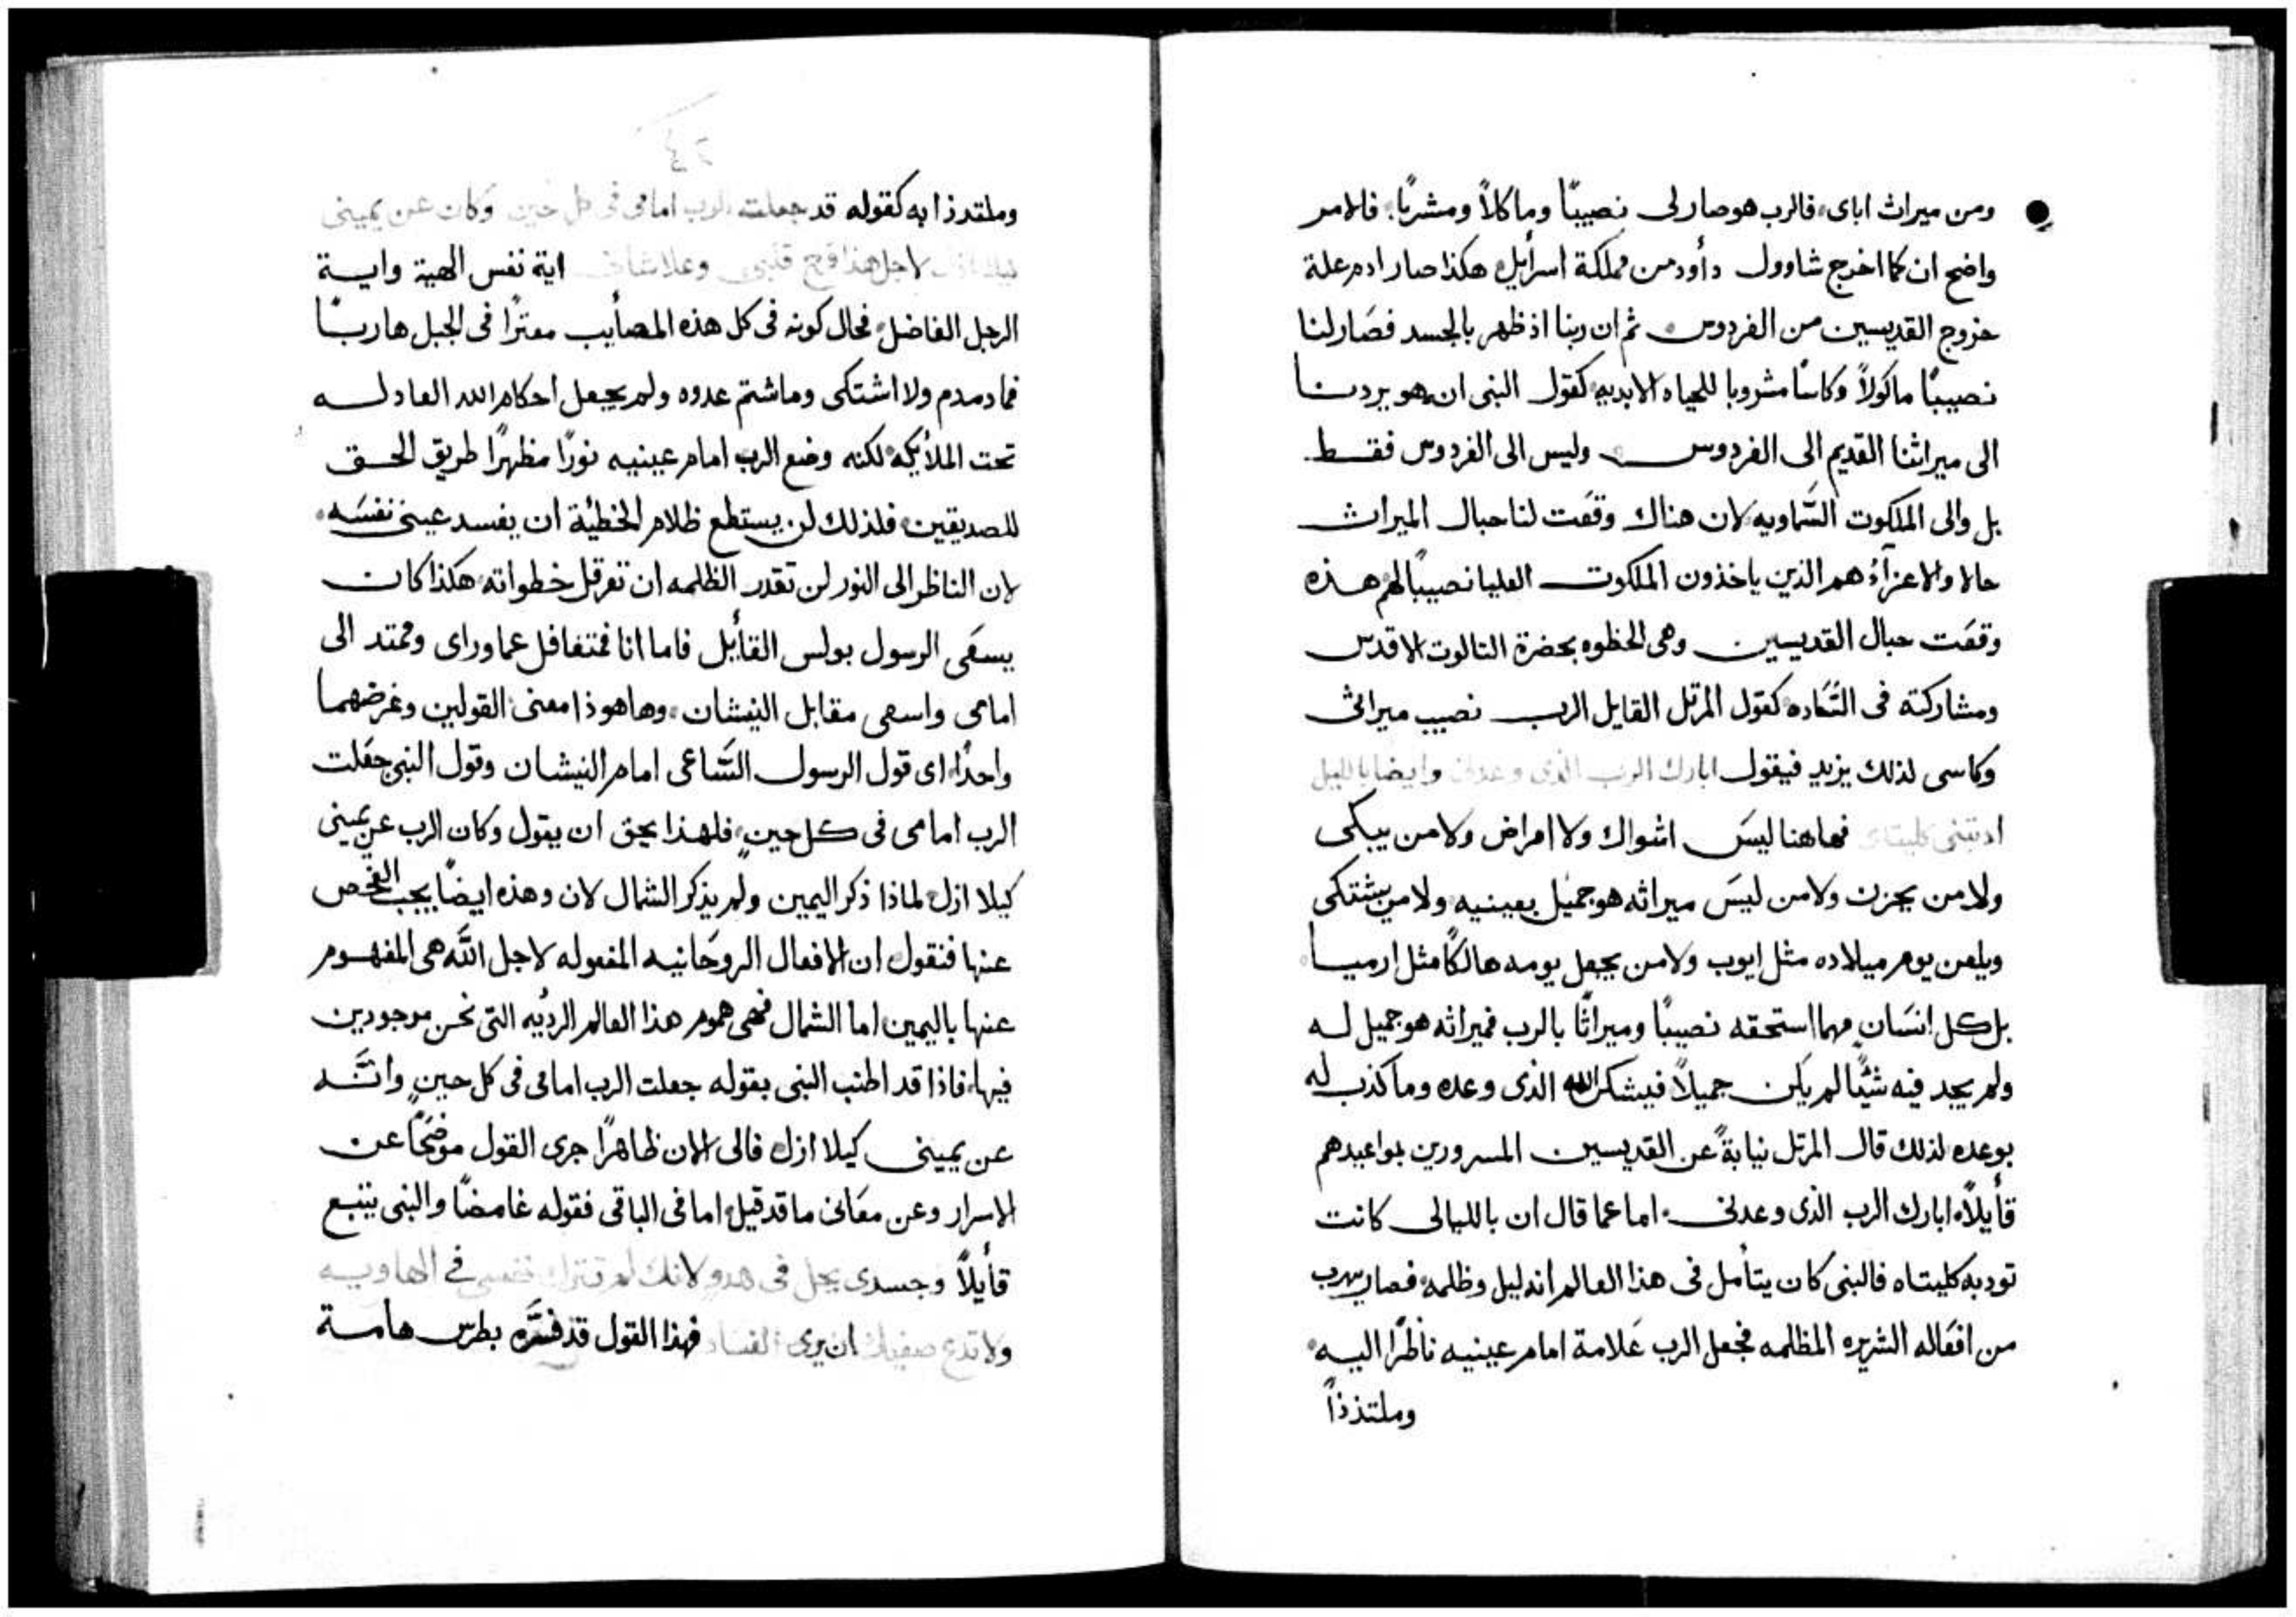 ومن ميراث اباى، فالرب هو صار لى نصيبًا وماكلاً ومشربًا. فالامر
واضح ان كما اخرج شاوول داود من مملكة اسرأيل هكذا صار ادم علة
خروج القديسين من الفردوس. ثم ان ربنا اذ ظهر بالجسد فصَار لنا
نصيبًا ماكولاً وكاسًا مشروبا للحياه الابديه كقول النبى ان هو يردنا
الى ميراثنا القديم الى الفردوس وليس الى الفردوس فقط
بل والى الملكوت السَّماويه لان هناك وقعَت لنا حبال الميراث
حالا والاعزآءُ هم الذين ياخذون الملكوت العليا نصيبًا لهم هذه
وقعَت حبال القديسين وهى الحظوه بحضرة الثالوث الاقدس
ومشاركته فى السَّعَاده كقول المرتل القايل الرب نصيب ميراثى
وكاسى لذلك يزيد فيقول ابارك الرب الذى وعدنى وايضًا بالليل
ادبتنى كليتاى فهاهنا ليسَ اشواك ولا امراض ولا من يبكى
ولا من يحزن ولا من ليسَ ميراثه هو جميل بعينيه ولا من يشتكى
ويلعن يوم ميلاده مثل ايوب ولا من يجعل يومه هالكًا مثل ارميا
بل كل انسَانٍ مهما استحقه نصيبًا وميراثًا بالرب فميراثه هو جميل له
ولم يجد فيه شيًا لم يكن جميلاً فيشكر الله الذى وعده وما كذب له
بوعده لذلك قال المرتل نيابةً عن القديسين المسرورين بمواعيدهم
قأيلاً ابارك الرب الذى وعدنى. اما عما قال ان بالليالى كانت
تودبه كليتاه فالنبى كان يتأمل فى هذا العالم انه ليل وظلمه فصار يهرب
من افعَاله الشريره المظلمه فجعل الرب عَلامة امام عينيه ناظرًا اليه
وملتذذاً
٤٢
وملتذذا به كقوله قد جعلت الرب امامى فى كل حين وكان عن يمينى
كيلا ازل لاجل هذا فرح قلبى وعلا شانى اية نفس الهية واية
الرجل الفاضل فحال كونه فى كل هذه المصأيب معترًا فى الجبل هاربًا
فما دمدم ولا اشتكى وما شتم عدوه ولم يجعل احكام الله العادله
تحت الملأيكه لكنه وضع الرب امام عينيه نورًا مظهرًا طريق الحق
للصديقين فلذلك لن يستطع ظلام الخطئة ان يفسد عينى نفسَه
لان الناظر الى النور لن تقدر الظلمه ان تعرقل خطواته هكذا كان
يسعَى الرسول بولس القأيل فاما انا فمتغافل عما وراى وممتد الى
امامى واسعى مقابل النيشان. وها هوذا معنى القولين وغرضهما
واحدًا اى قول الرسول السَّاعى امام النيشان وقول النبى جعَلت
الرب امامى فى كل حينٍ، فلهذا يحق ان يقول وكان الرب عن يمينى
كيلا ازل لماذا ذكر اليمين ولم يذكر الشمال لان وهذه ايضًا يجب الفحص
عنها فنقول ان الافعال الروحَانيه المفعوله لاجل اللَّه هى المفهوم
عنها باليمين اما الشمال فهى هموم هذا العالم الرديه التى نحن موجودين
فيها، فاذا قد اطنب النبى بقوله جعلت الرب امامى فى كل حينٍ وانَّه
عن يمينى كيلا ازل فالى الان ظاهرًا جرى القول موضحًا عن
الاسرار وعن معَانى ما قد قيل اما فى الباقى فقوله غامضًا والنبى يتبع
قأيلاً وجسدى يحل فى هدو لانك لم تترك نفسى فى الهاويه
ولا تدع صفيك ان يرى الفساد فهذا القول قد فسَّره بطرس هامة